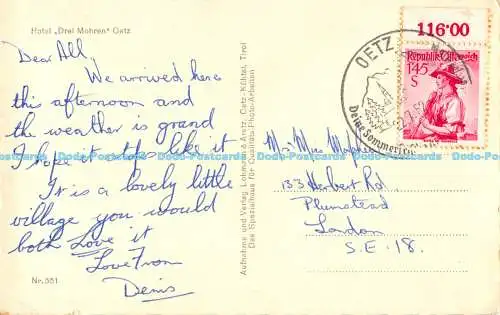 Hotel „Drei Mohren" Oetz
Dear All,
We arrived here
this afternoon and
the weather is grand
I hope it stays like it
It is a lovely little
village you would
both love it
Love from
Denis
Nr. 551
Aufnahme und Verlag Lohmann & Arnst, Oetz-Kühtai, Tirol
Das Spezialhaus für Qualitäts-Photo-Arbeiten
116·00
Republik Österreich
1·45
S
OETZ
Deine Sommerfrische
Mrs
133 Herbert Rd
Plumstead
London
S.E.18.
Dodo-Postcards Dodo-Postcards Dodo-Postcards Dodo-Postcards